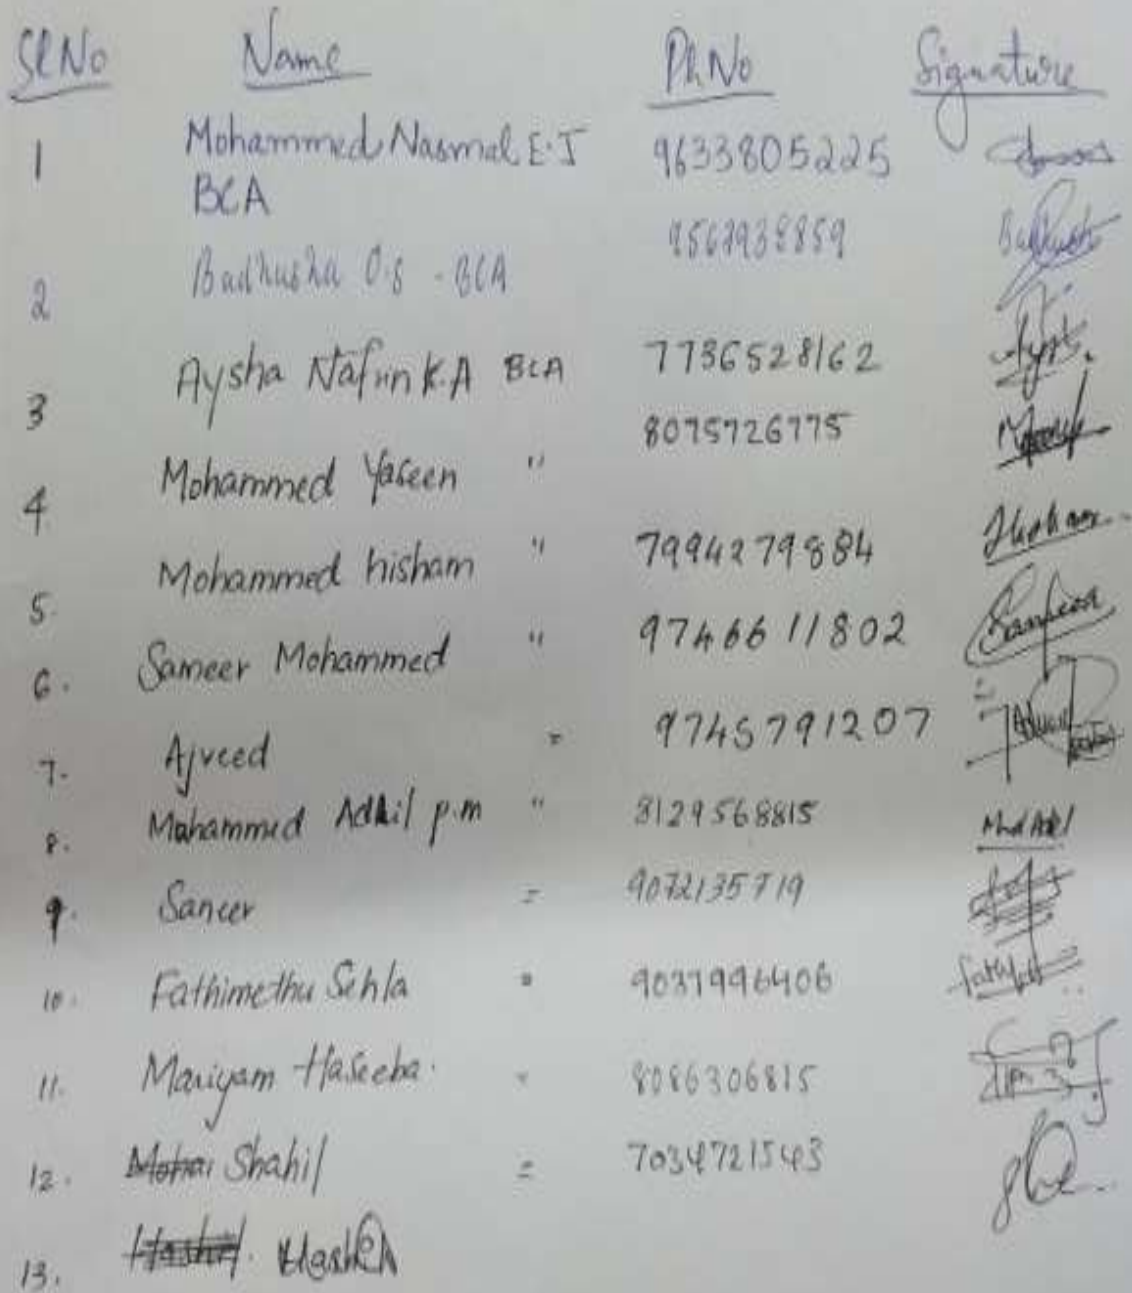 Sl.No Name Ph.No Signature
1 Mohammed Nasmal E.J 9633805225
BCA
2 Badhusha O.S - BCA 9567938859 Badhusha
3 Aysha Nafrin K.A BCA 7736528162
4 Mohammed Yaseen " 8075726775
5. Mohammed hisham " 7994279884
6. Sameer Mohammed " 9746611802
7. Ajveed " 9745791207
8. Mohammed Adhil p.m " 8129568815 Mhd Adhil
9. Saneer = 9072135719
10. Fathimethu Sehla " 9037996406
11. Mariyam Haseeba. " 8086306815
12. Shahil = 7034721543
13.